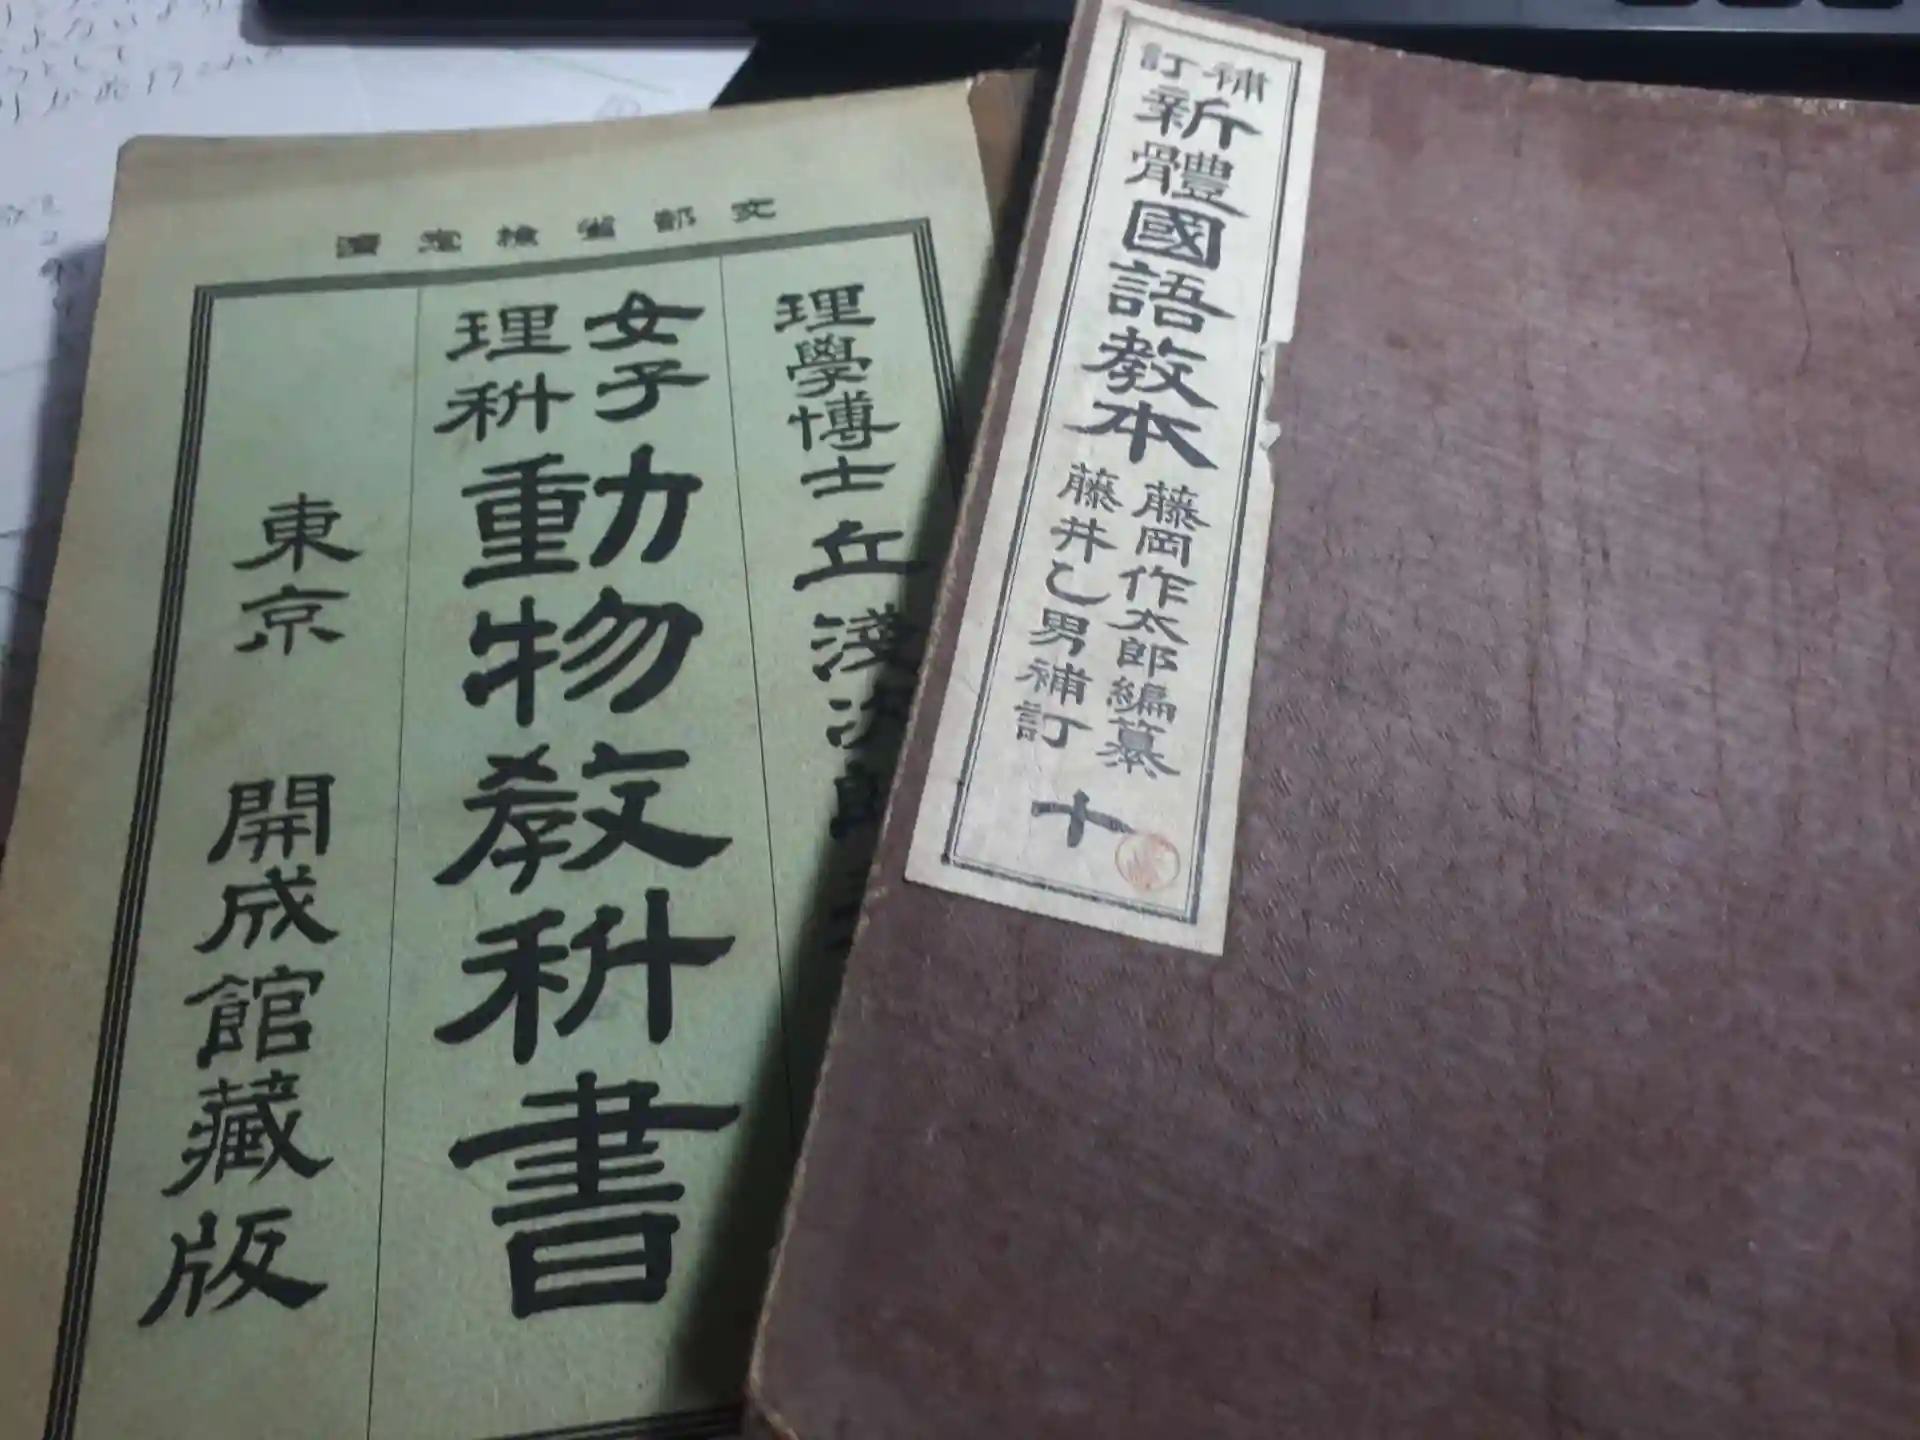 文部省檢定濟
理學博士 丘淺次郎
女子理科 動物教科書
東京 開成館藏版
補訂 新體國語教本
藤岡作太郎編纂
藤井乙男補訂
十